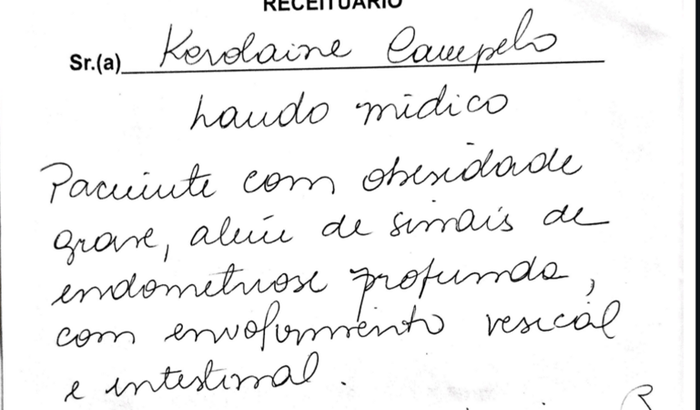 RECEITUÁRIO
Sr.(a) Kerolaine Campelo
Laudo médico
Paciente com obesidade
grave, além de sinais de
endometriose profunda,
com envolvimento vesical
e intestinal.